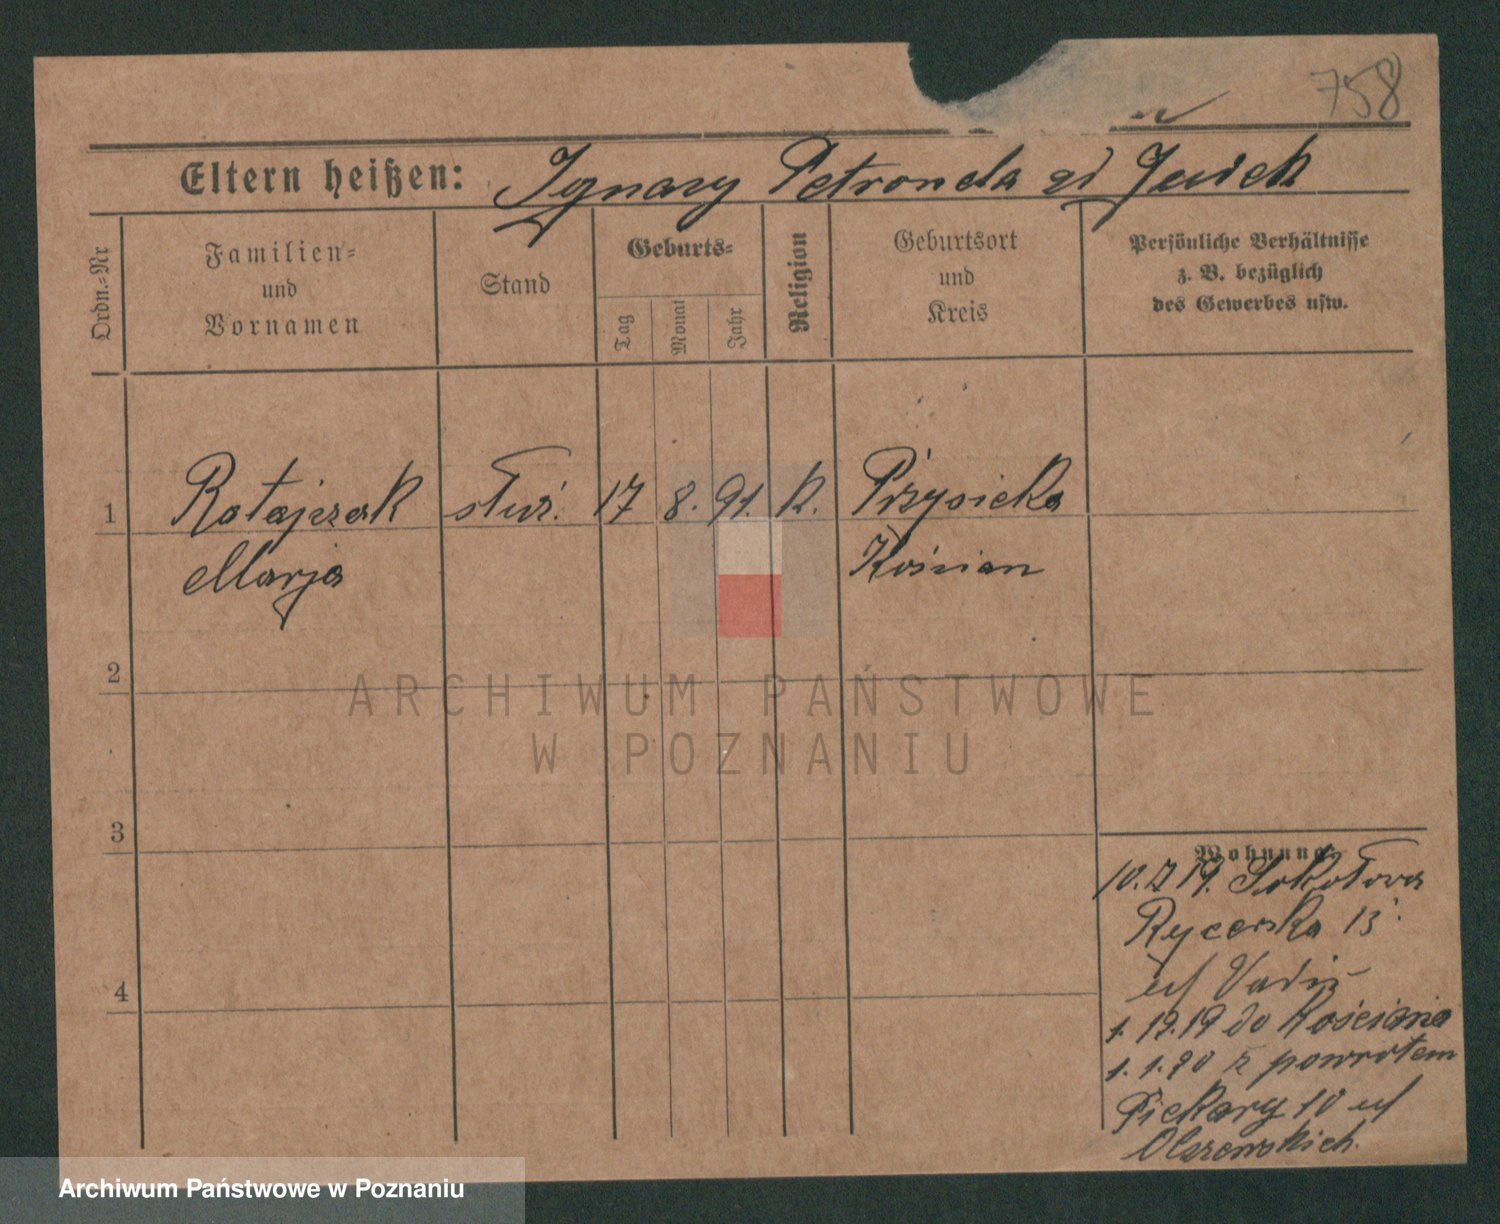 758
Eltern heißen: Ignacy Petronela
Ordn.-Nr
Familien-
und
Vornamen
Stand
Geburts-
Tag
Monat
Jahr
Religion
Geburtsort
und
Kreis
Persönliche Verhältnisse
z. B. bezüglich
des Gewerbes usw.
1 Ratajczak służ. 17 8. 91. k. Przysieka
Marja Kościan
2
3
4
Wohnung
19. Sokołowa
Rycerska 13
1. 12. 19 do Kościana
1. 1. 20 z powrotem
Piekary 10 u
Olszewskich.
ARCHIWUM PAŃSTWOWE
W POZNANIU
Archiwum Państwowe w Poznaniu